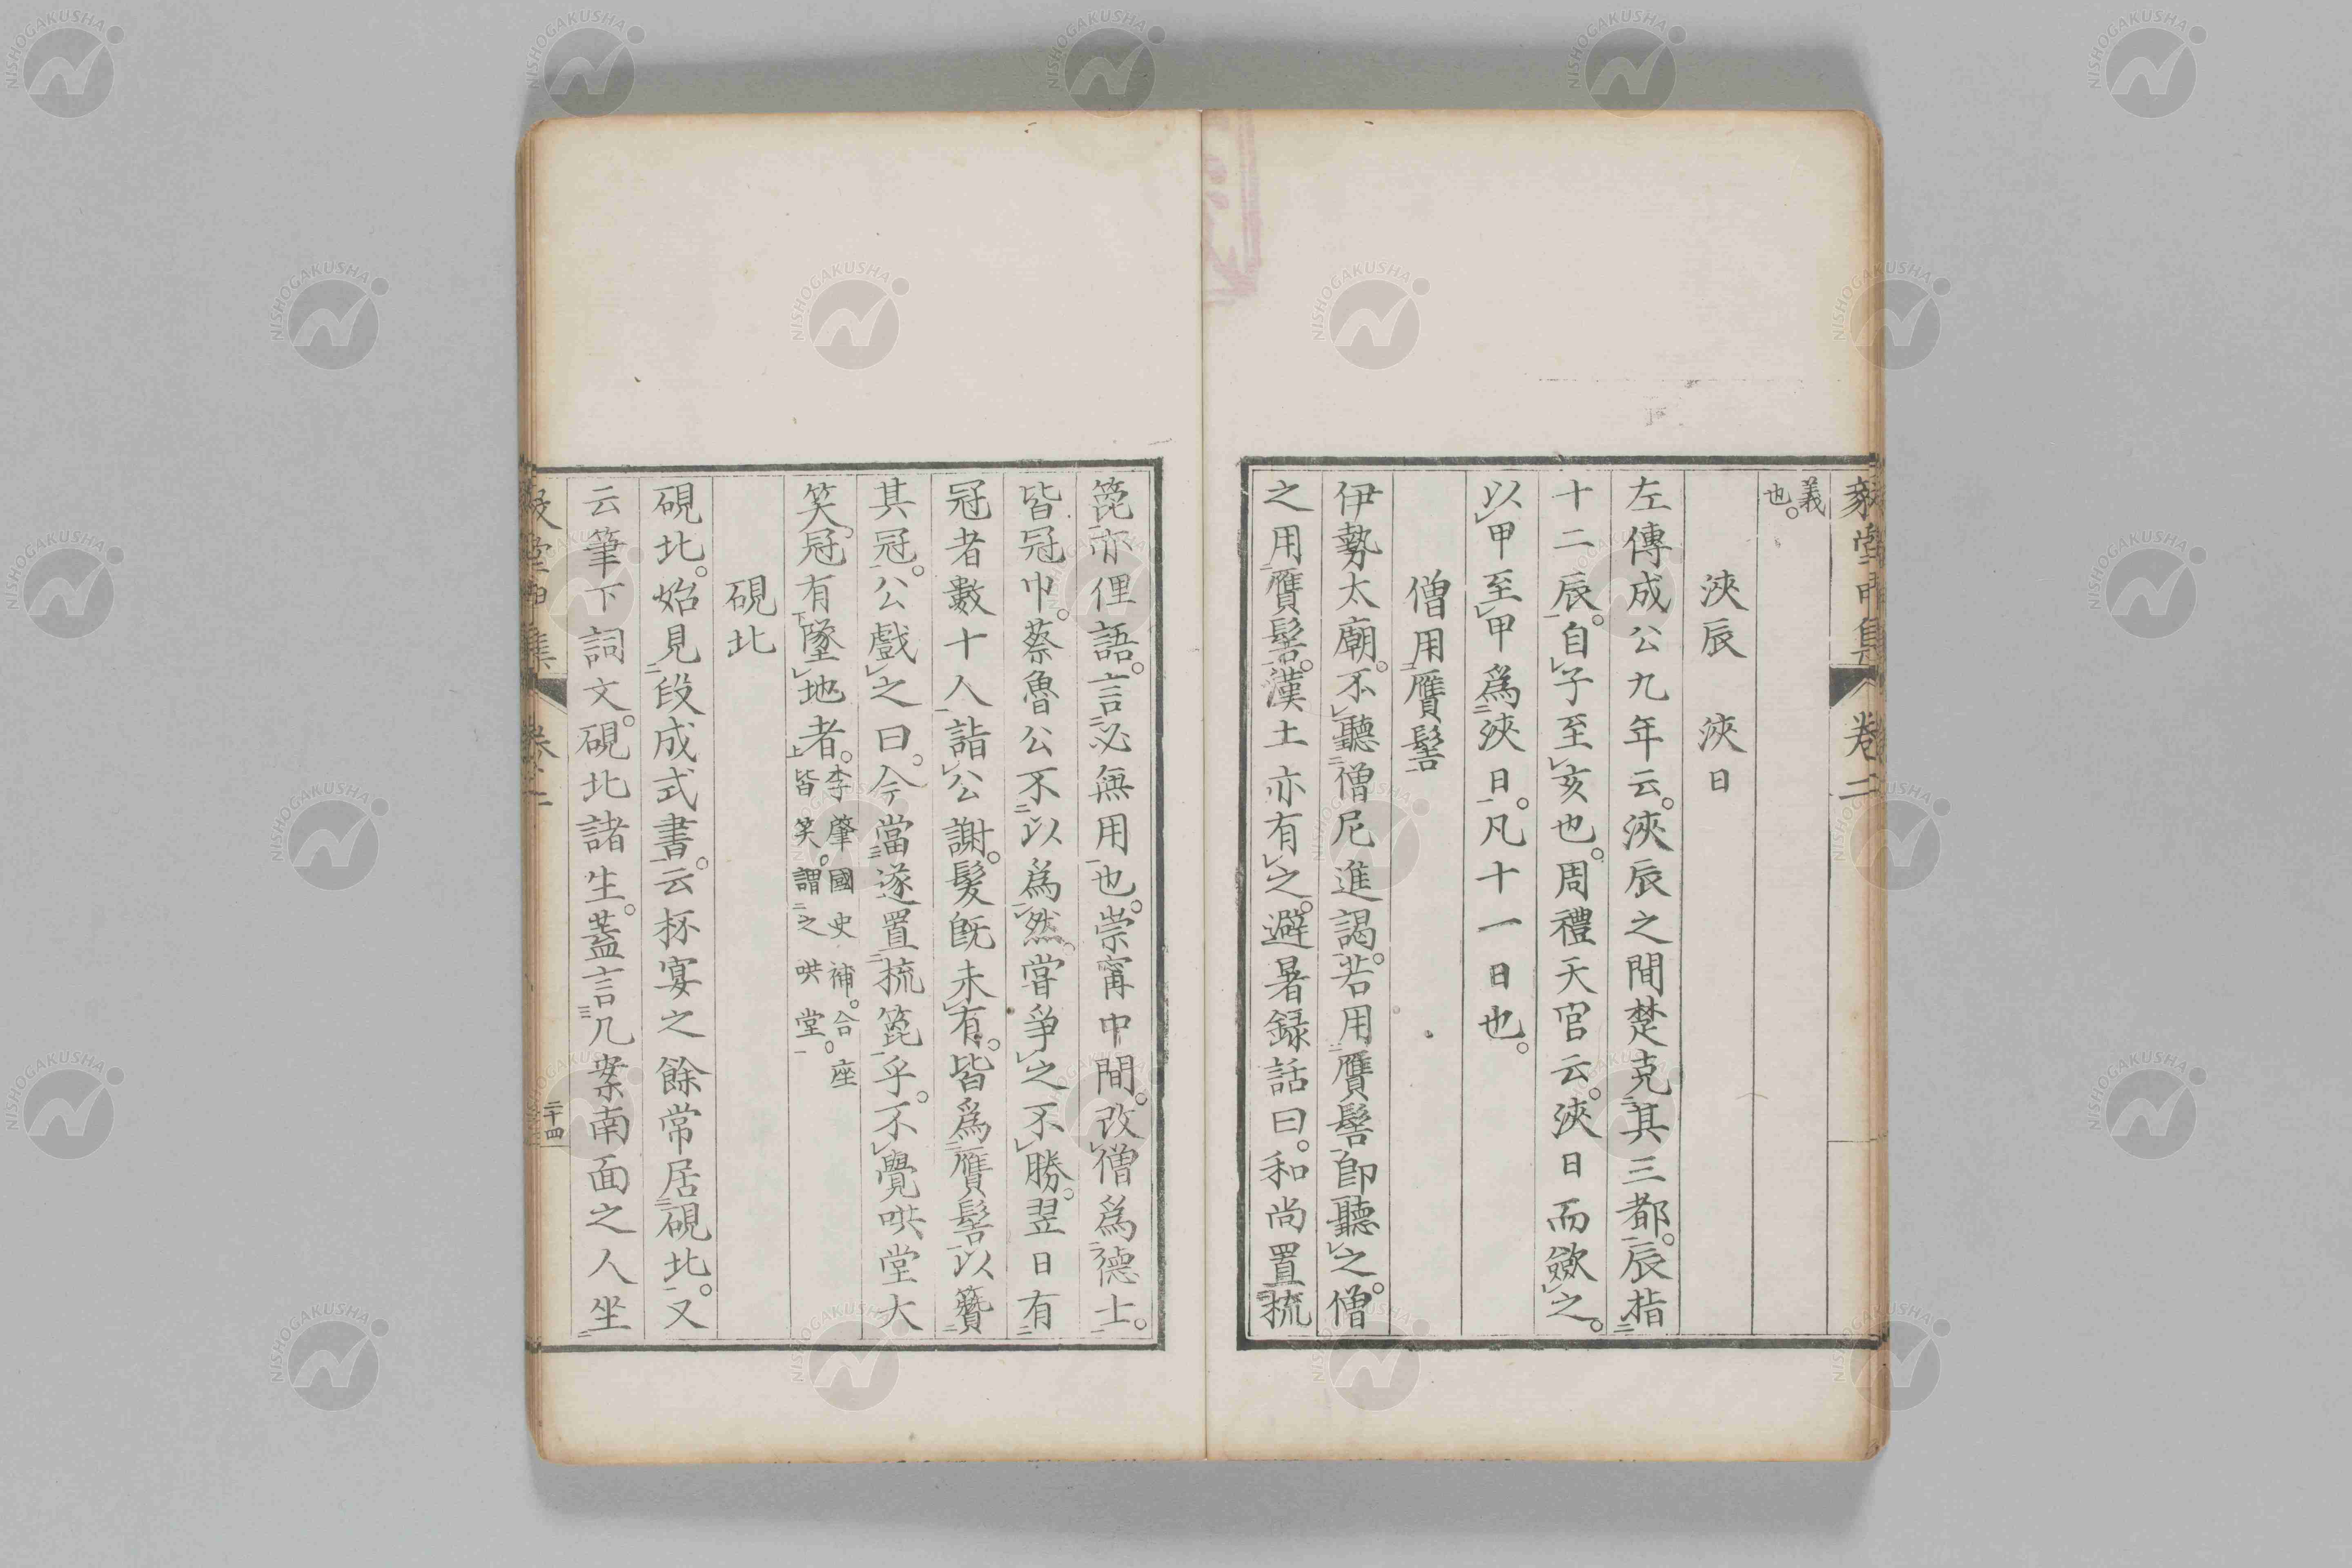 義
也。
浹辰　浹日
左傳成公九年云。浹辰之間楚克其三都。辰指
十二辰。自子至亥也。周禮天官云。浹日而斂之。
以甲至甲爲浹日。凡十一日也。
僧用贋髻
伊勢太廟。不聽僧尼進謁。若用贋髻卽聽之。僧
之用贋髻。漢土亦有之。避暑録話曰。和尚置梳
篦亦俚語。言必無用也。崇寗中間。改僧爲德士。
皆冠巾。蔡魯公不以爲然。嘗爭之不勝。翌日有
冠者數十人詣公謝。髮既未有。皆爲贋髻以簪
其冠。公戲之曰。今當遂置梳篦乎。不覺哄堂大
笑。冠有墜地者。李肇國史補。合座
皆笑。謂之哄堂。
硯北
硯北。始見段成式書。云杯宴之餘常居硯北。又
云筆下詞文。硯北諸生。蓋言几案南面之人坐
卷二
二十四
NISHOGAKUSHA